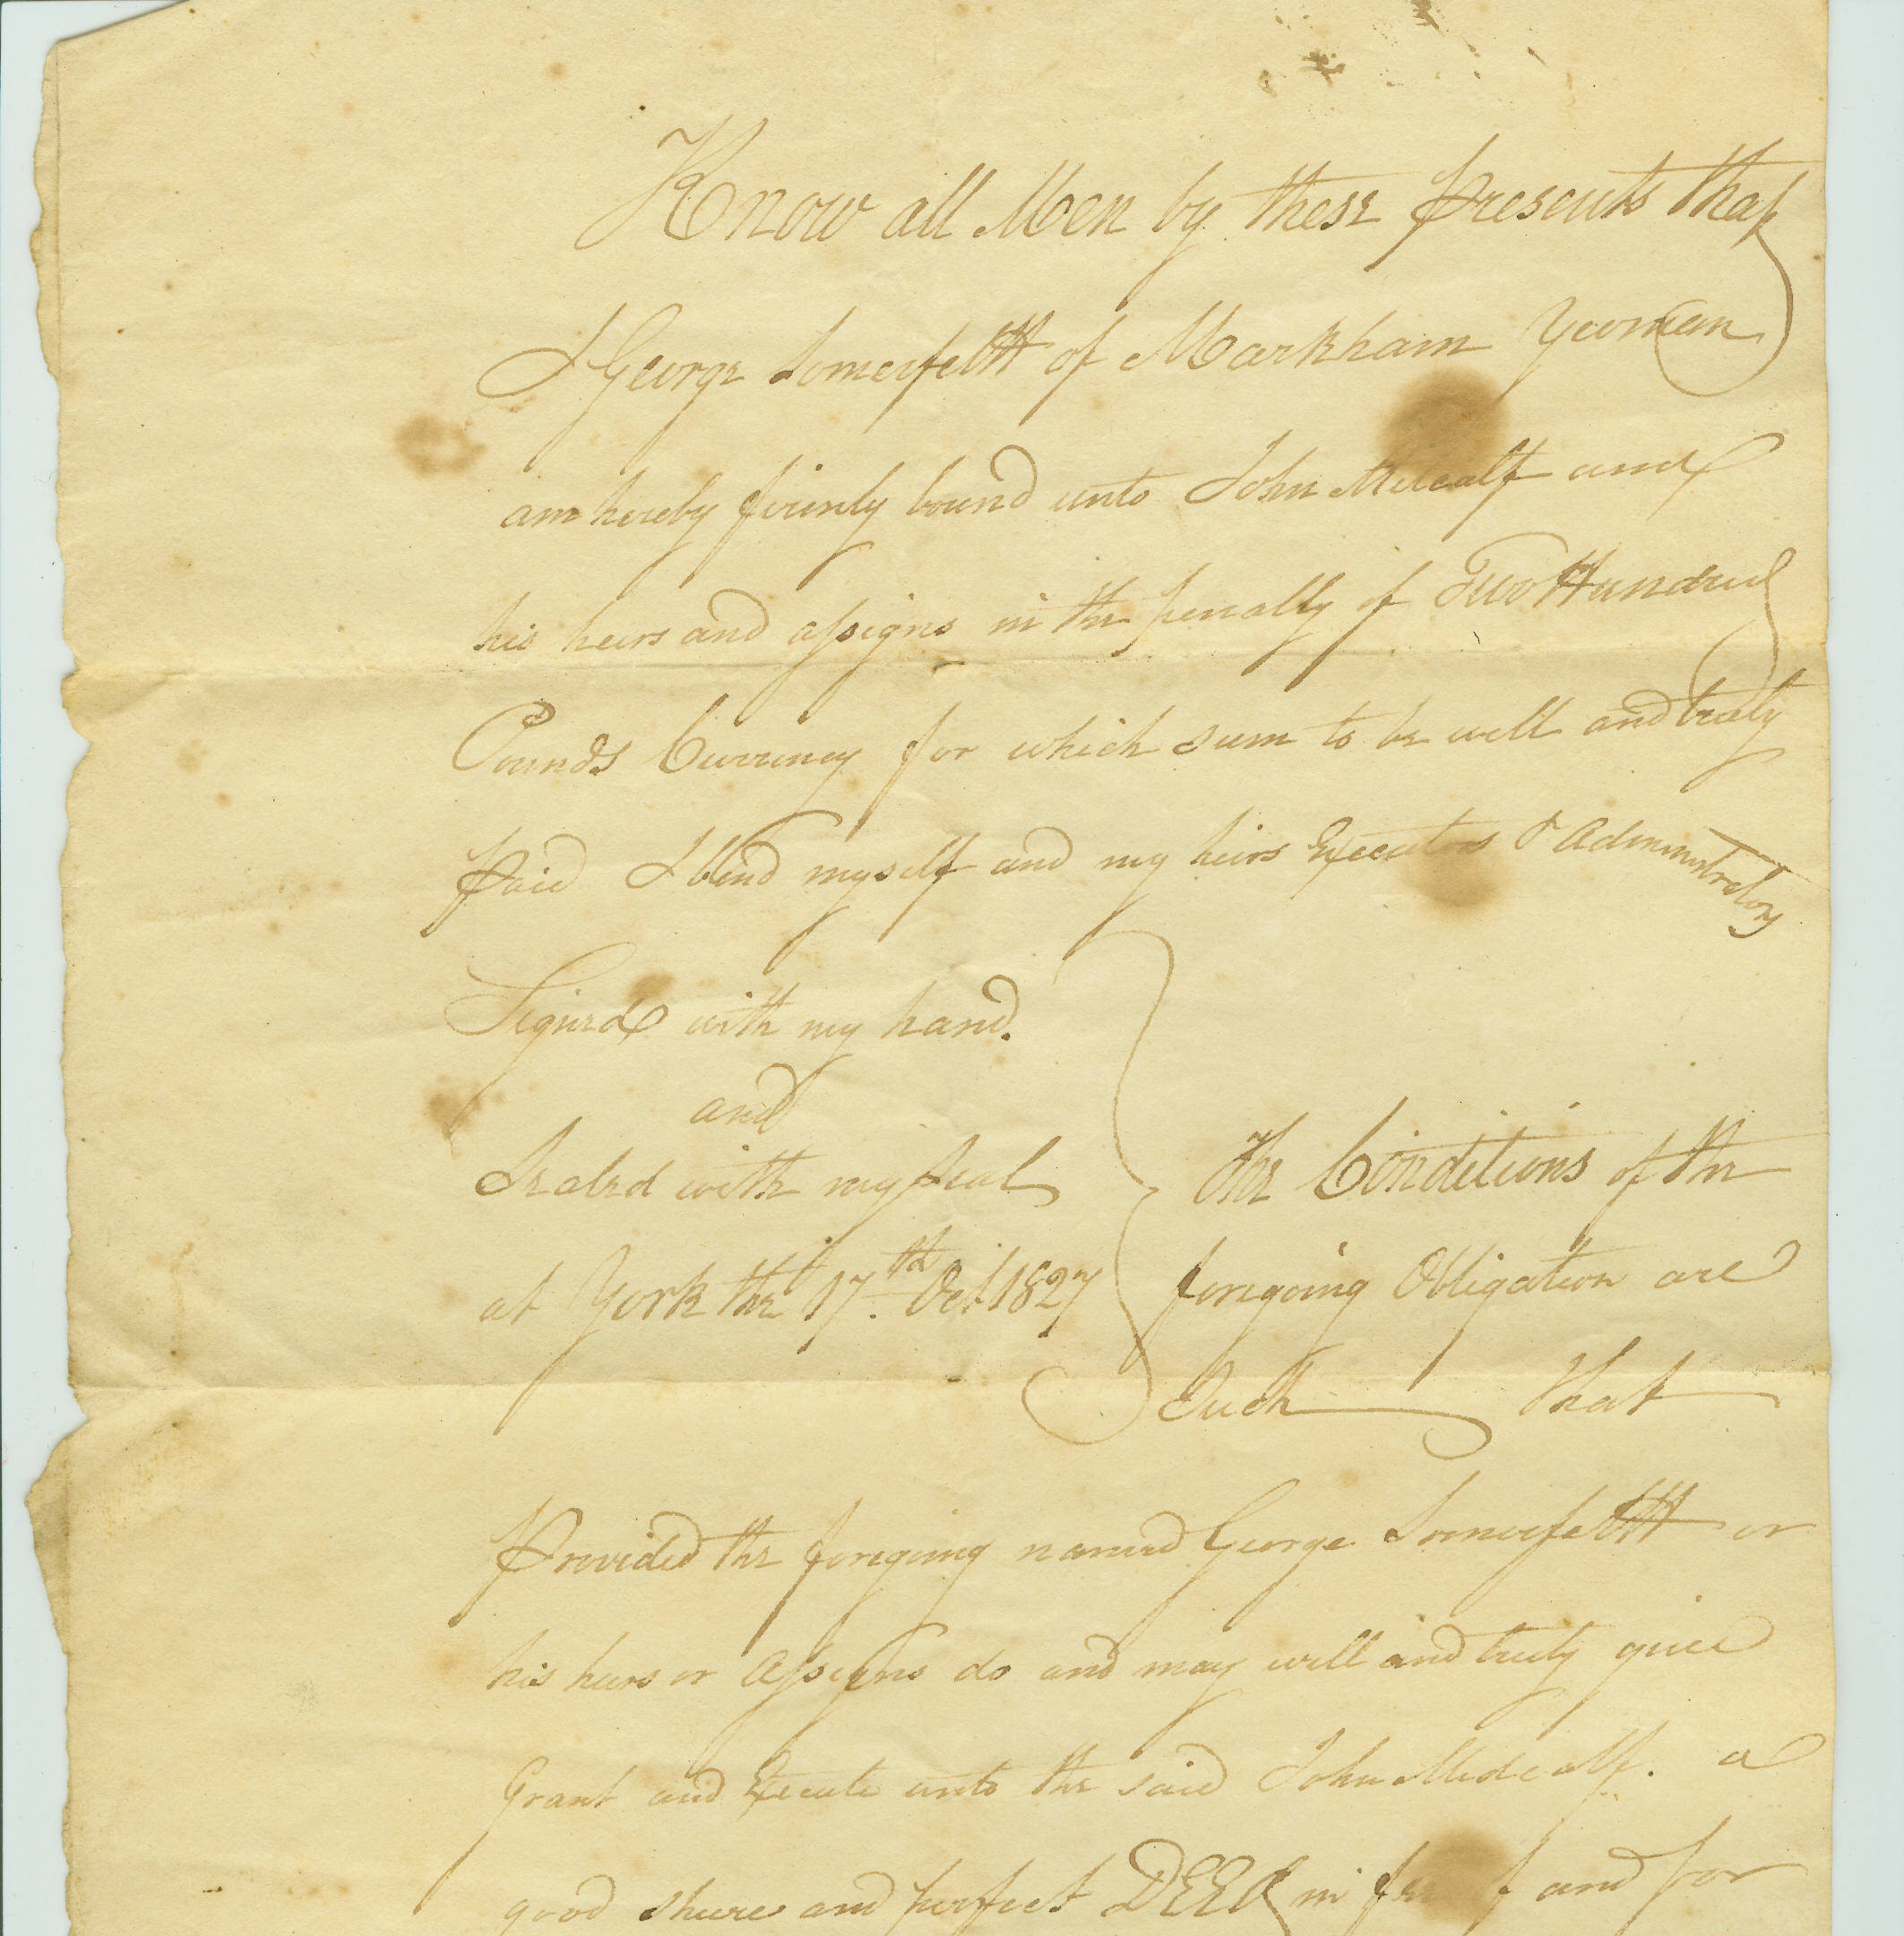 Know all Men by these Presents that
I George Somerfeltt of Markham Yeoman
am hereby firmly bound unto John Metcalf and
his heirs and assigns in the penalty of Two Hundred
Pounds Currency for which sum to be well and truly
Paid I bind myself and my heirs Executors & Administrators
Signed with my hand.
and
Sealed with my seal
at York the 17th Oct 1827
The Conditions of the
foregoing Obligation are
Such that
Provided the foregoing named George Somerfeltt or
his heirs or Assigns do and may well and truly give
Grant and Execute unto the said John Medcalf. a
good shure and perfect DEED in and for